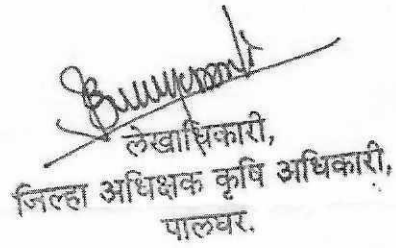 लेखाधिकारी,
जिल्हा अधिक्षक कृषि अधिकारी,
पालघर.